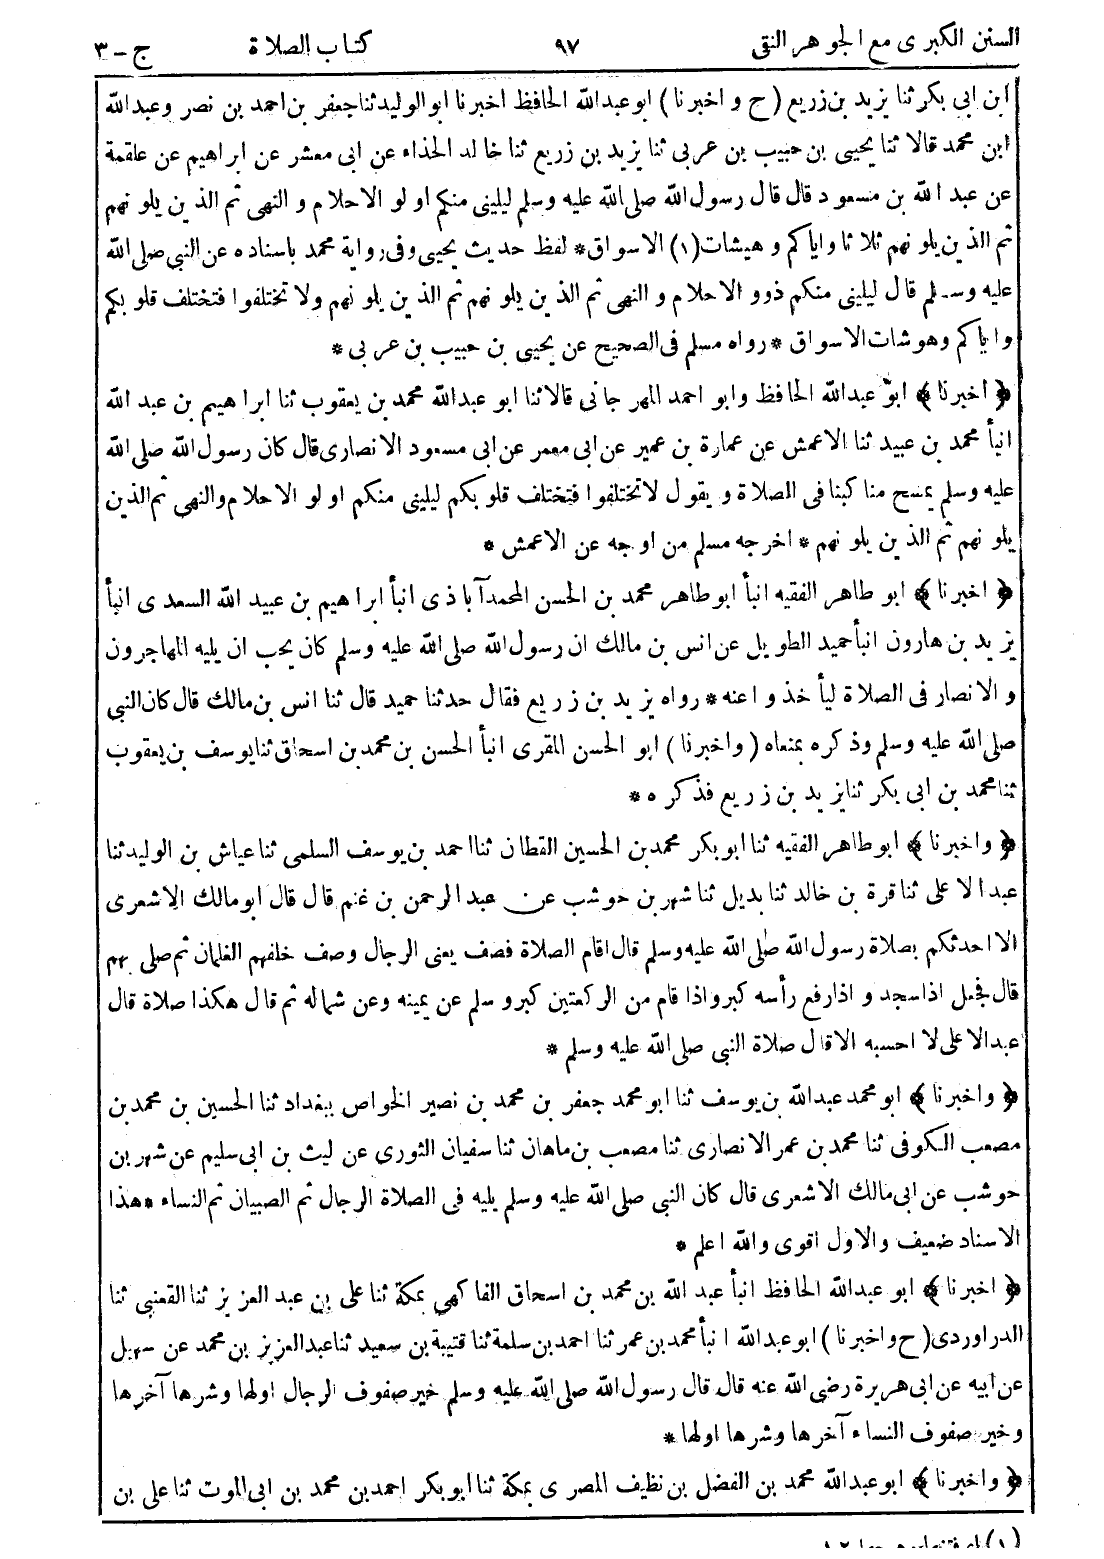 السنن الكبرى مع الجوهر النقى ٩٧ كتاب الصلاة ج - ٣
ابن ابى بكر ثنا يزيد بن زريع (ح و اخبرنا) ابو عبد الله الحافظ اخبرنا ابو الوليد ثنا جعفر بن احمد بن نصر وعبد الله
ابن محمد قالا ثنا يحيى بن حبيب بن عربى ثنا يزيد بن زريع ثنا خالد الحذاء عن ابى معشر عن ابراهيم عن علقمة
عن عبد الله بن مسعود قال قال رسول الله صلى الله عليه وسلم ليلينى منكم اولو الاحلام و النهى ثم الذين يلونهم
ثم الذين يلونهم ثلاثا و اياكم و هيشات (١) الاسواق * لفظ حديث يحيى وفى رواية محمد باسناده عن النبى صلى الله
عليه وسلم قال ليلينى منكم ذوو الاحلام و النهى ثم الذين يلونهم ثم الذين يلونهم ولا تختلفوا فتختلف قلوبكم
واياكم وهوشات الاسواق * رواه مسلم فى الصحيح عن يحيى بن حبيب بن عربى *
﴿ اخبرنا ﴾ ابو عبد الله الحافظ وابو احمد المهرجانى قالا ثنا ابو عبد الله محمد بن يعقوب ثنا ابراهيم بن عبد الله
انبأ محمد بن عبيد ثنا الاعمش عن عمارة بن عمير عن ابى معمر عن ابى مسعود الانصارى قال كان رسول الله صلى الله
عليه وسلم يمسح مناكبنا فى الصلاة و يقول لا تختلفوا فتختلف قلوبكم ليلينى منكم اولو الاحلام والنهى ثم الذين
يلونهم ثم الذين يلونهم * اخرجه مسلم من اوجه عن الاعمش *
﴿ اخبرنا ﴾ ابو طاهر الفقيه انبأ ابو طاهر محمد بن الحسن المحمدآباذى انبأ ابراهيم بن عبيد الله السعدى انبأ
يزيد بن هارون انبأ حميد الطويل عن انس بن مالك ان رسول الله صلى الله عليه وسلم كان يحب ان يليه المهاجرون
و الانصار فى الصلاة ليأخذوا عنه * رواه يزيد بن زريع فقال حدثنا حميد قال ثنا انس بن مالك قال كان النبى
صلى الله عليه وسلم وذكره بمنعاه (واخبرنا) ابو الحسن المقرى انبأ الحسن بن محمد بن اسحاق ثنا يوسف بن يعقوب
ثنا محمد بن ابى بكر ثنا يزيد بن زريع فذكره *
﴿ واخبرنا ﴾ ابو طاهر الفقيه ثنا ابو بكر محمد بن الحسين القطان ثنا احمد بن يوسف السلمى ثنا عياش بن الوليد ثنا
عبد الاعلى ثنا قرة بن خالد ثنا بديل ثنا شهر بن حوشب عن عبد الرحمن بن غنم قال قال ابو مالك الاشعرى
الا احدثكم بصلاة رسول الله صلى الله عليه وسلم قال اقام الصلاة فصف يعنى الرجال وصف خلفهم الغلمان ثم صلى بهم
قال فجعل اذا سجد و اذا رفع رأسه كبر واذا قام من الركعتين كبر و سلم عن يمينه وعن شماله ثم قال هكذا صلاة قال
عبد الاعلى لا احسبه الا قال صلاة النبى صلى الله عليه وسلم *
﴿ واخبرنا ﴾ ابو محمد عبد الله بن يوسف ثنا ابو محمد جعفر بن محمد بن نصير الخواص ببغداد ثنا الحسين بن محمد بن
مصعب الكوفى ثنا محمد بن عمر الانصارى ثنا مصعب بن ماهان ثنا سفيان الثورى عن ليث بن ابى سليم عن شهر بن
حوشب عن ابى مالك الاشعرى قال كان النبى صلى الله عليه وسلم يليه فى الصلاة الرجال ثم الصبيان ثم النساء * هذا
الاسناد ضعيف والاول اقوى والله اعلم *
﴿ اخبرنا ﴾ ابو عبد الله الحافظ انبأ عبد الله بن محمد بن اسحاق الفاكهى بمكة ثنا على بن عبد العزيز ثنا القعنبى ثنا
الدراوردى (ح و اخبرنا) ابو عبد الله انبأ محمد بن عمر ثنا احمد بن سلمة ثنا قتيبة بن سعيد ثنا عبد العزيز بن محمد عن سهيل
عن ابيه عن ابى هريرة رضى الله عنه قال قال رسول الله صلى الله عليه وسلم خير صفوف الرجال اولها وشرها آخرها
وخير صفوف النساء آخرها وشرها اولها *
﴿ واخبرنا ﴾ ابو عبد الله محمد بن الفضل بن نظيف المصرى بمكة ثنا ابو بكر احمد بن محمد بن ابى الموت ثنا على بن
(١)